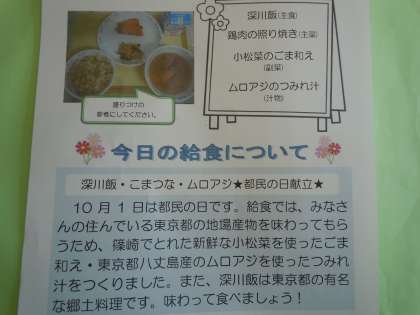 深川飯(主食)
鶏肉の照り焼き(主菜)
小松菜のごま和え
(副菜)
ムロアジのつみれ汁
(汁物)
盛りつけの
参考にしてください。
今日の給食について
深川飯・こまつな・ムロアジ★都民の日献立★
10月1日は都民の日です。給食では、みなさ
んの住んでいる東京都の地場産物を味わってもら
うため、篠崎でとれた新鮮な小松菜を使ったごま
和え・東京都八丈島産のムロアジを使ったつみれ
汁をつくりました。また、深川飯は東京都の有名
な郷土料理です。味わって食べましょう!